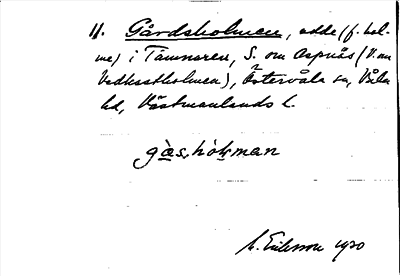 11. Gårdsholmen, udde (f. hol-
me) i Tämnaren, S. om Aspnäs (V. om
Vedkastholmen), Östervåla sn, Våla
hd, Västmanlands l.
gàs,hòlman
Eriksson 1920